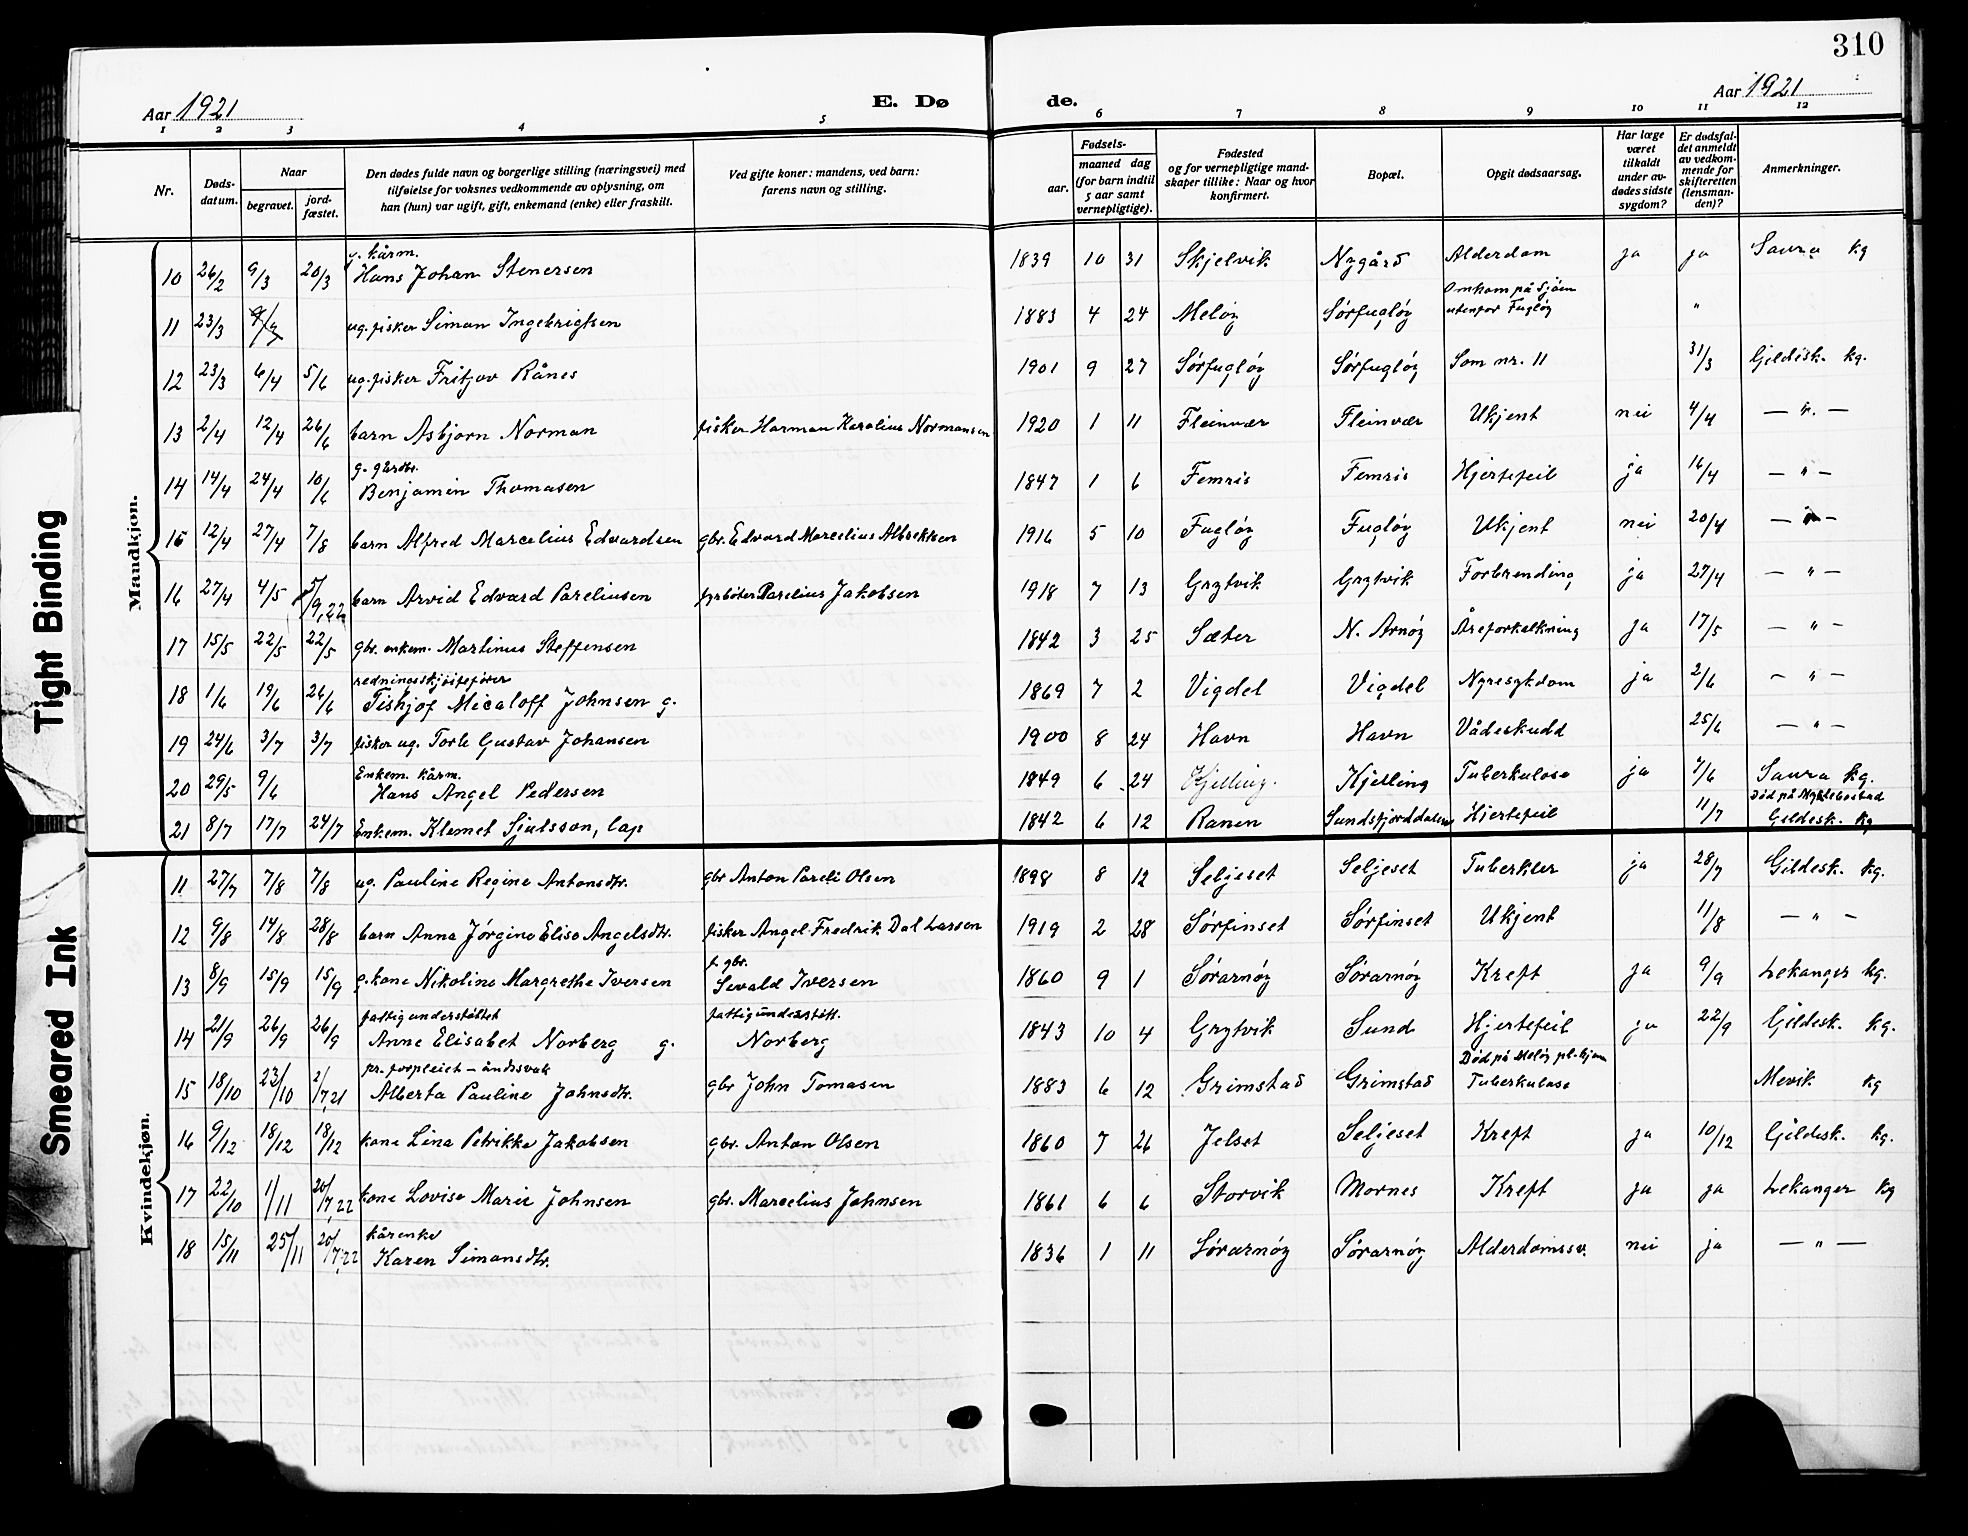 310
Aar 1921 E. Dø de. Aar 1921
1 2 3 4 5 6 7 8 9 10 11 12
Nr. Døds-datum. Naar begravet. jord-fæstet. Den dødes fulde navn og borgerlige stilling (næringsvei) med tilføielse for voksnes vedkommende av oplysning, om han (hun) var ugift, gift, enkemand (enke) eller fraskilt. Ved gifte koner: mandens, ved barn: farens navn og stilling. Fødsels- aar. maaned dag (for barn indtil 5 aar samt vernepligtige). Fødested og for vernepligtige mand-skaper tillike: Naar og hvor konfirmert. Bopæl. Opgit dødsaarsag. Har læge været tilkaldt under av-dødes sidste sygdom? Er dødsfal-det anmeldt av vedkom-mende for skifteretten (lensman-den)? Anmerkninger.
Mandkjøn.
10 26/2 9/3 20/3 g. kårm. Hans Johan Stenersen 1839 10 31 Skjelvik Nygård Alderdom ja ja Saura kg
11 23/3 ug. fisker Simon Ingebrigtsen 1883 4 24 Meløy Sørfugløy Omkom på Sjøen utenfor Fugløy "
12 23/3 6/4 5/6 ug. fisker Fritjov Rånes 1901 9 27 Sørfugløy Sørfugløy Som nr. 11 31/3 Gildesk. kg.
13 2/4 12/4 26/6 barn Asbjørn Norman fisker Harman Karolius Normansen 1920 1 11 Fleinvær Fleinvær Ukjent nei 4/4 — " —
14 14/4 24/4 10/6 g. gårdbr. Benjamin Thomasen 1847 1 6 Femris Femris Hjertefeil ja 16/4 — " —
15 12/4 27/4 7/8 barn Alfred Marcelius Edvardsen gbr. Edvard Marcelius Albrektsen 1916 5 10 Fugløy Fugløy Ukjent nei 20/4 — " —
16 27/4 4/5 5/9,22 barn Arvid Edvard Pareliusen fyrbøter Parelius Jakobsen 1918 7 13 Grytvik Grytvik Forbrending ja 27/4 — " —
17 15/5 22/5 22/5 gbr. enkem. Martinus Steffensen 1842 3 25 Sæter N. Arnøy Åreforkalkning ja 17/5 — " —
18 1/6 19/6 26/6 redningsskjøitefører Tiskjøf Micaloff Johnsen g. 1869 7 2 Vigdel Vigdel Nyresykdom ja 2/6 — " —
19 24/6 3/7 3/7 fisker ug. Torle Gustav Johansen 1900 8 24 Havn Havn Vådeskudd 25/6 — " —
20 29/5 9/6 Enkem. kårm. Hans Angel Pedersen 1849 6 24 Kjelling. Kjelling Tuberkulose ja 7/6 Saura kg.
21 8/7 17/7 24/7 Enkem. Klemet Sjulsson, lap 1842 6 12 Ranen Sundsfjorddalen Hjertefeil 11/7 Død på Myklebostad Gildesk. kg
Kvindekjøn.
11 27/7 7/8 7/8 ug. Pauline Regine Antonsdtr. gbr Anton Pareli Olsen 1898 8 12 Seljeset Seljeset Tuberkler ja 28/7 Gildesk. kg.
12 9/8 14/8 28/8 barn Anna Jørgine Elise Angelsdtr. fisker Angel Fredrik Dal Larsen 1919 2 28 Sørfinset Sørfinset Ukjent 11/8 — " —
13 8/9 15/9 15/9 g. kone Nikoline Margrethe Iversen f. gbr. Sevald Iversen 1860 9 1 Sørarnøy Sørarnøy Kreft ja 9/9 Lekanger kg.
14 21/9 26/9 26/9 fattigunderstøttet Anne Elisabet Norberg g. fattigunderstøtt. Norberg 1843 10 4 Grytvik Sund Hjertefeil ja 22/9 Gildesk. kg.
15 18/10 23/10 2/7,21 pr. forpleiet – åndssvak Alberta Pauline Johnsdtr. gbr John Tomasen 1883 6 12 Grimstad Grimstad Død på Meløy pl.hjem Tuberkulose Mevik kg
16 9/12 18/12 18/12 kone Lina Petrikke Jakobsen gbr. Anton Olsen 1860 7 26 Jelset Seljeset Kreft ja 10/12 Gildesk. kg.
17 22/10 1/11 20/7,22 kone Lovise Marie Johnsen gbr. Marcelius Johnsen 1861 6 6 Storvik Mornes Kreft ja ja Lekanger kg
18 15/11 25/11 20/7,22 kårenke Karen Simonsdtr. 1836 1 11 Sørarnøy Sørarnøy Alderdomssv. nei ja — " —
Tight Binding
Smeared Ink